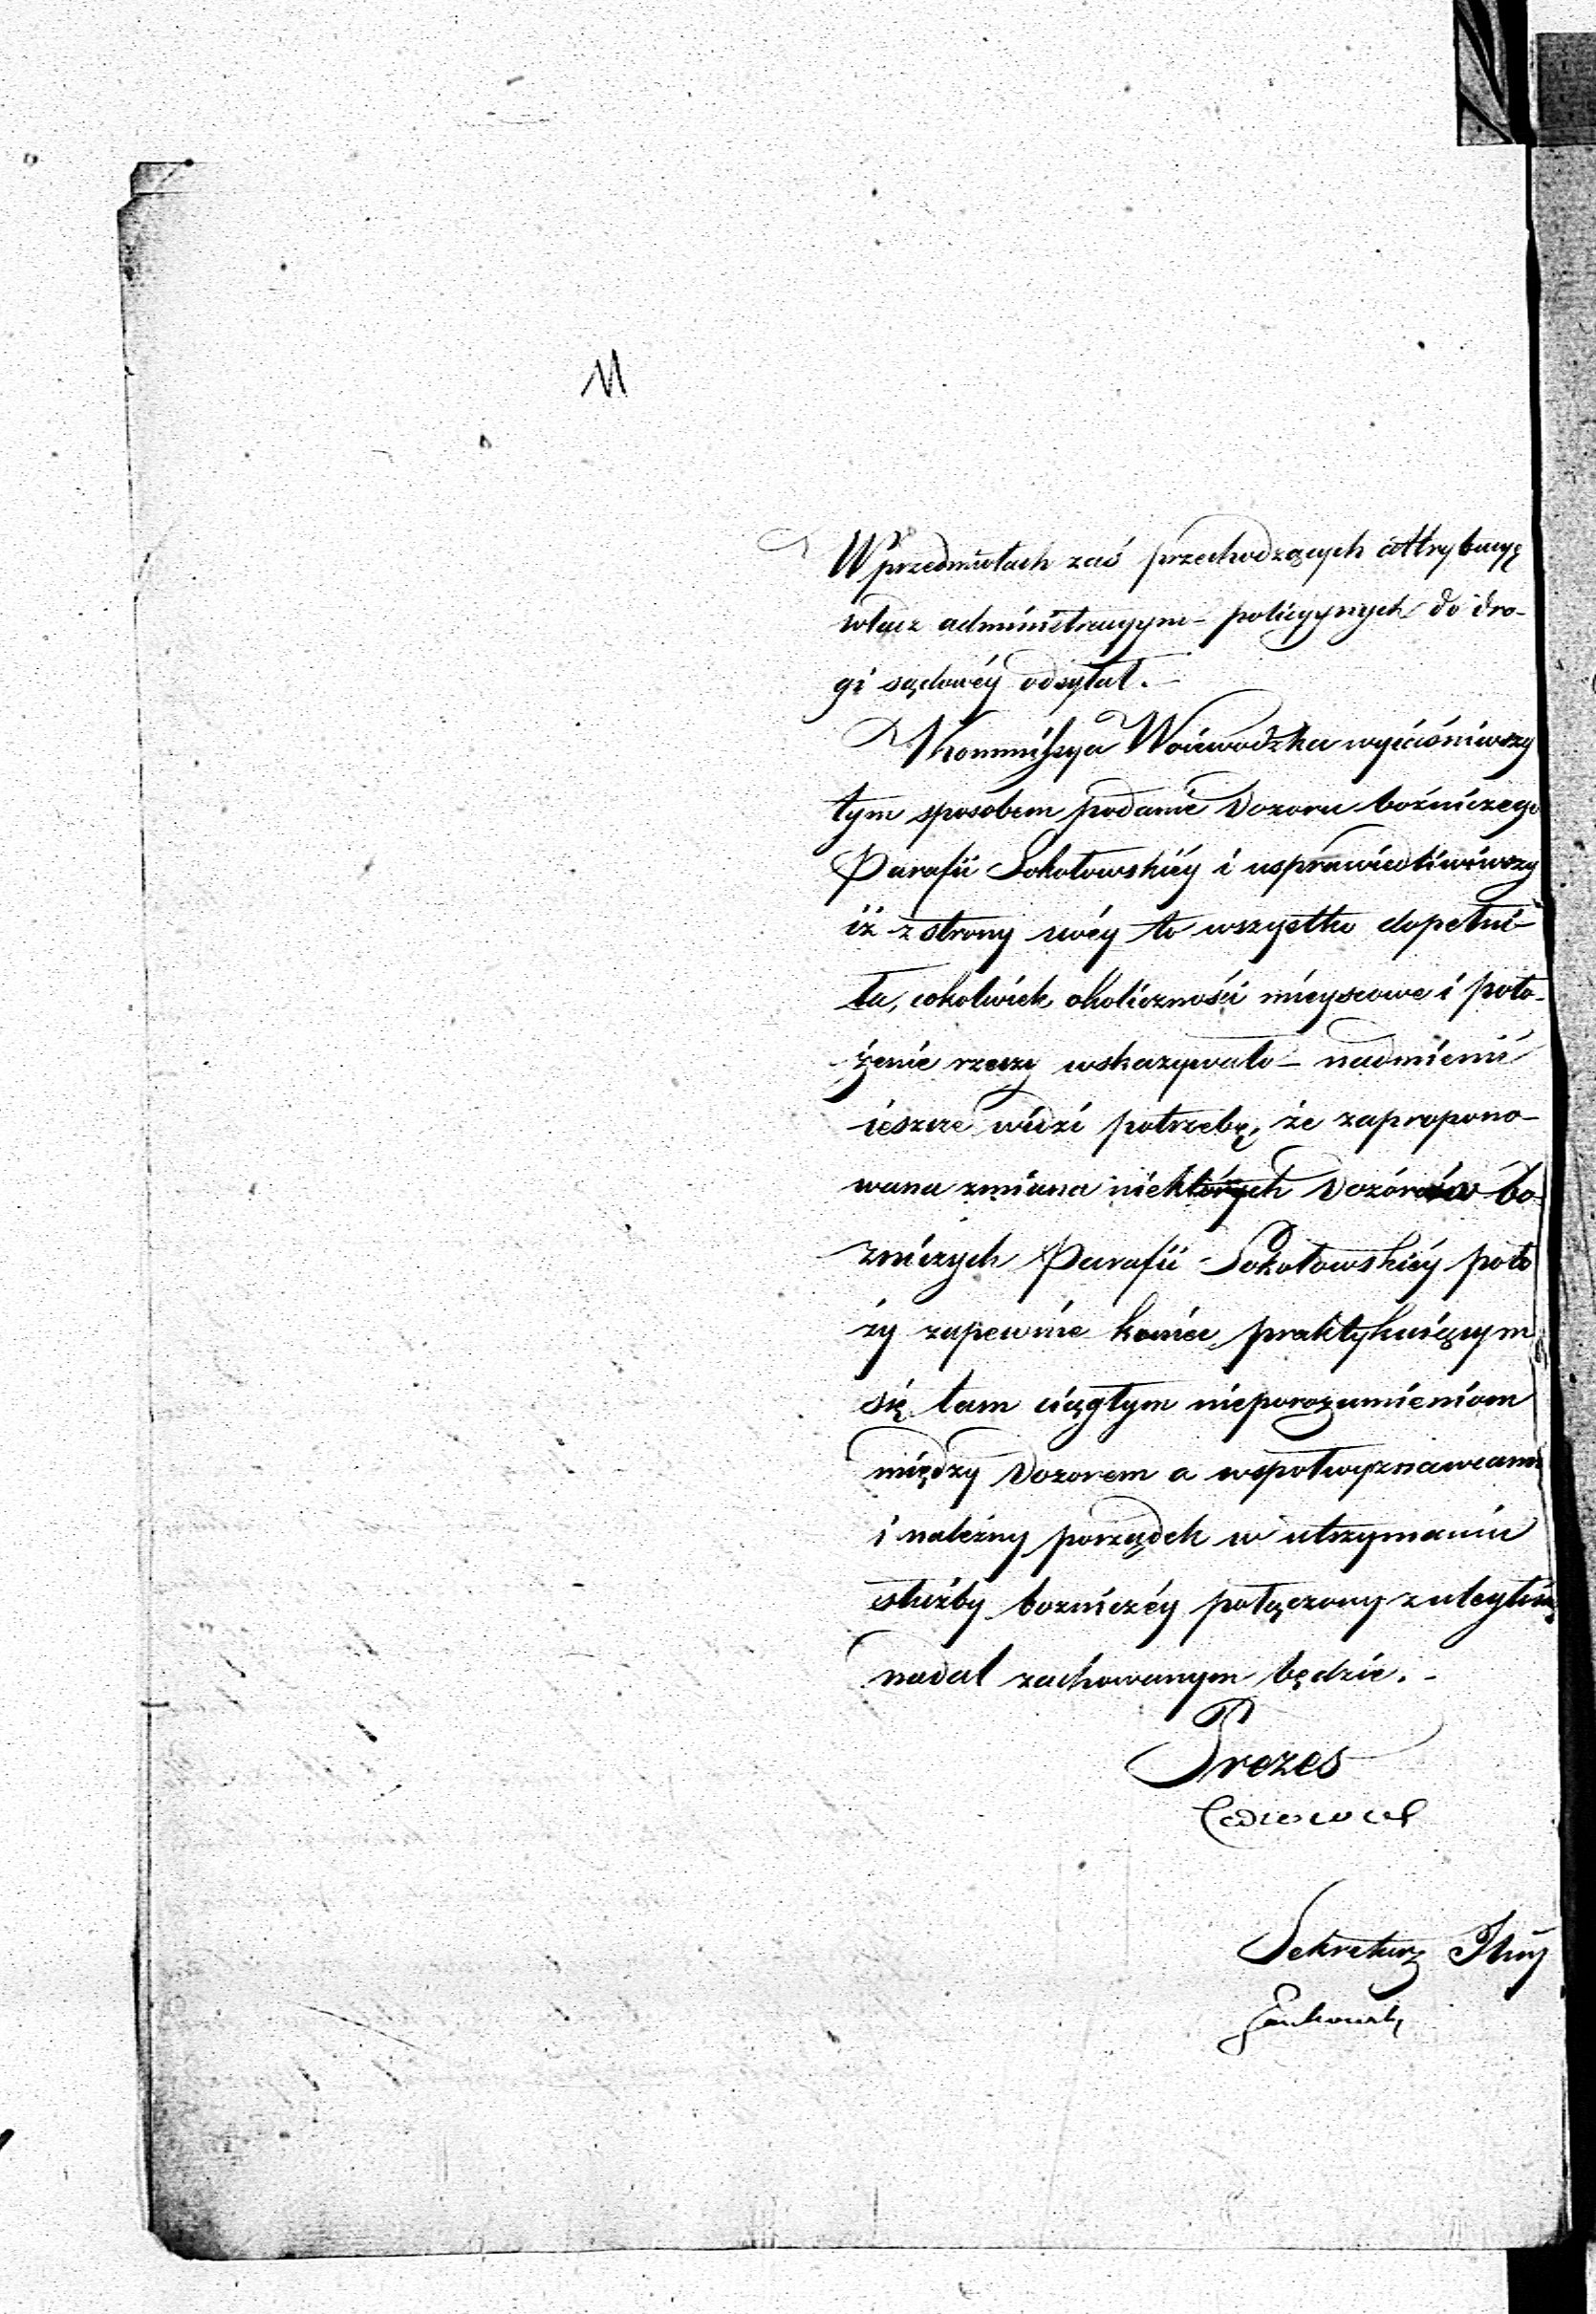 11
W przedmiotach zaś przechodzących attrybucyę
władz administracyjno- policyynych do dro-
gi sądowéy odsyłał.-
Kommissya Woiewodzka wyiaśniwszy
tym sposobem podanie Dozoru boźniczego
Parafii Sokołowskiéy i usprawiedliwiwszy
iż z strony swéy to wszystko dopełni-
ła, cokolwiek okoliczności mieyscowe i poło-
żenie rzeczy wskazywało - nadmienić
ieszcze widzi potrzebę, że zapropono-
wana zmiana niektórych Dozórców bo-
zniczych Parafii Sokołowskiéy poło
ży zapewnie koniec praktykuiącym
się tam ciągłym nieporozumieniom
między Dozorem a wspołwyznawcami
i należny porządek w utrzymaniu
służby bozniczéy połączony z uległością
nadal zachowanym będzie.-
Prezes
Sekretarz Jlny